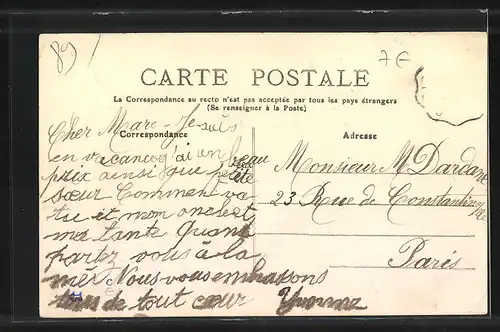 89
7 €
CARTE POSTALE
La Correspondance au recto n'est pas acceptée par tous les pays étrangers
(Se renseigner à la Poste)
Correspondance
Adresse
Cher Marc Je suis
en vacances j'ai un beau
prix ainsi que petite
sœur Comment va
tu et mon oncle et
ma tante Quand
partez vous à la
mer Nous vous embrassons
de tout cœur Yvonne
Monsieur M Dardane
23 Rue de Constantinople
Paris